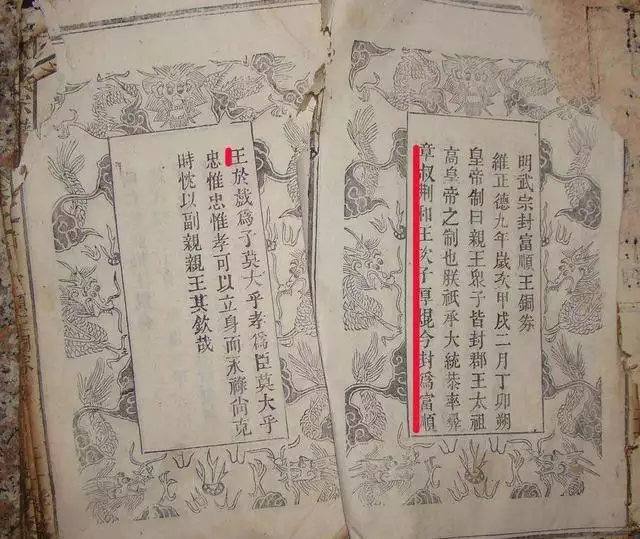 明武宗封富順王銅券
維正德九年歲次甲戌二月丁卯朔
皇帝制曰親王衆子皆封郡王太祖
高皇帝之制也朕祇承大統恭率彛
章叔荆和王次子厚焜今封爲富順
王於戲爲子莫大乎孝爲臣莫大乎
忠惟忠惟孝可以立身而永祿尚克
時忱以副親親王其欽哉